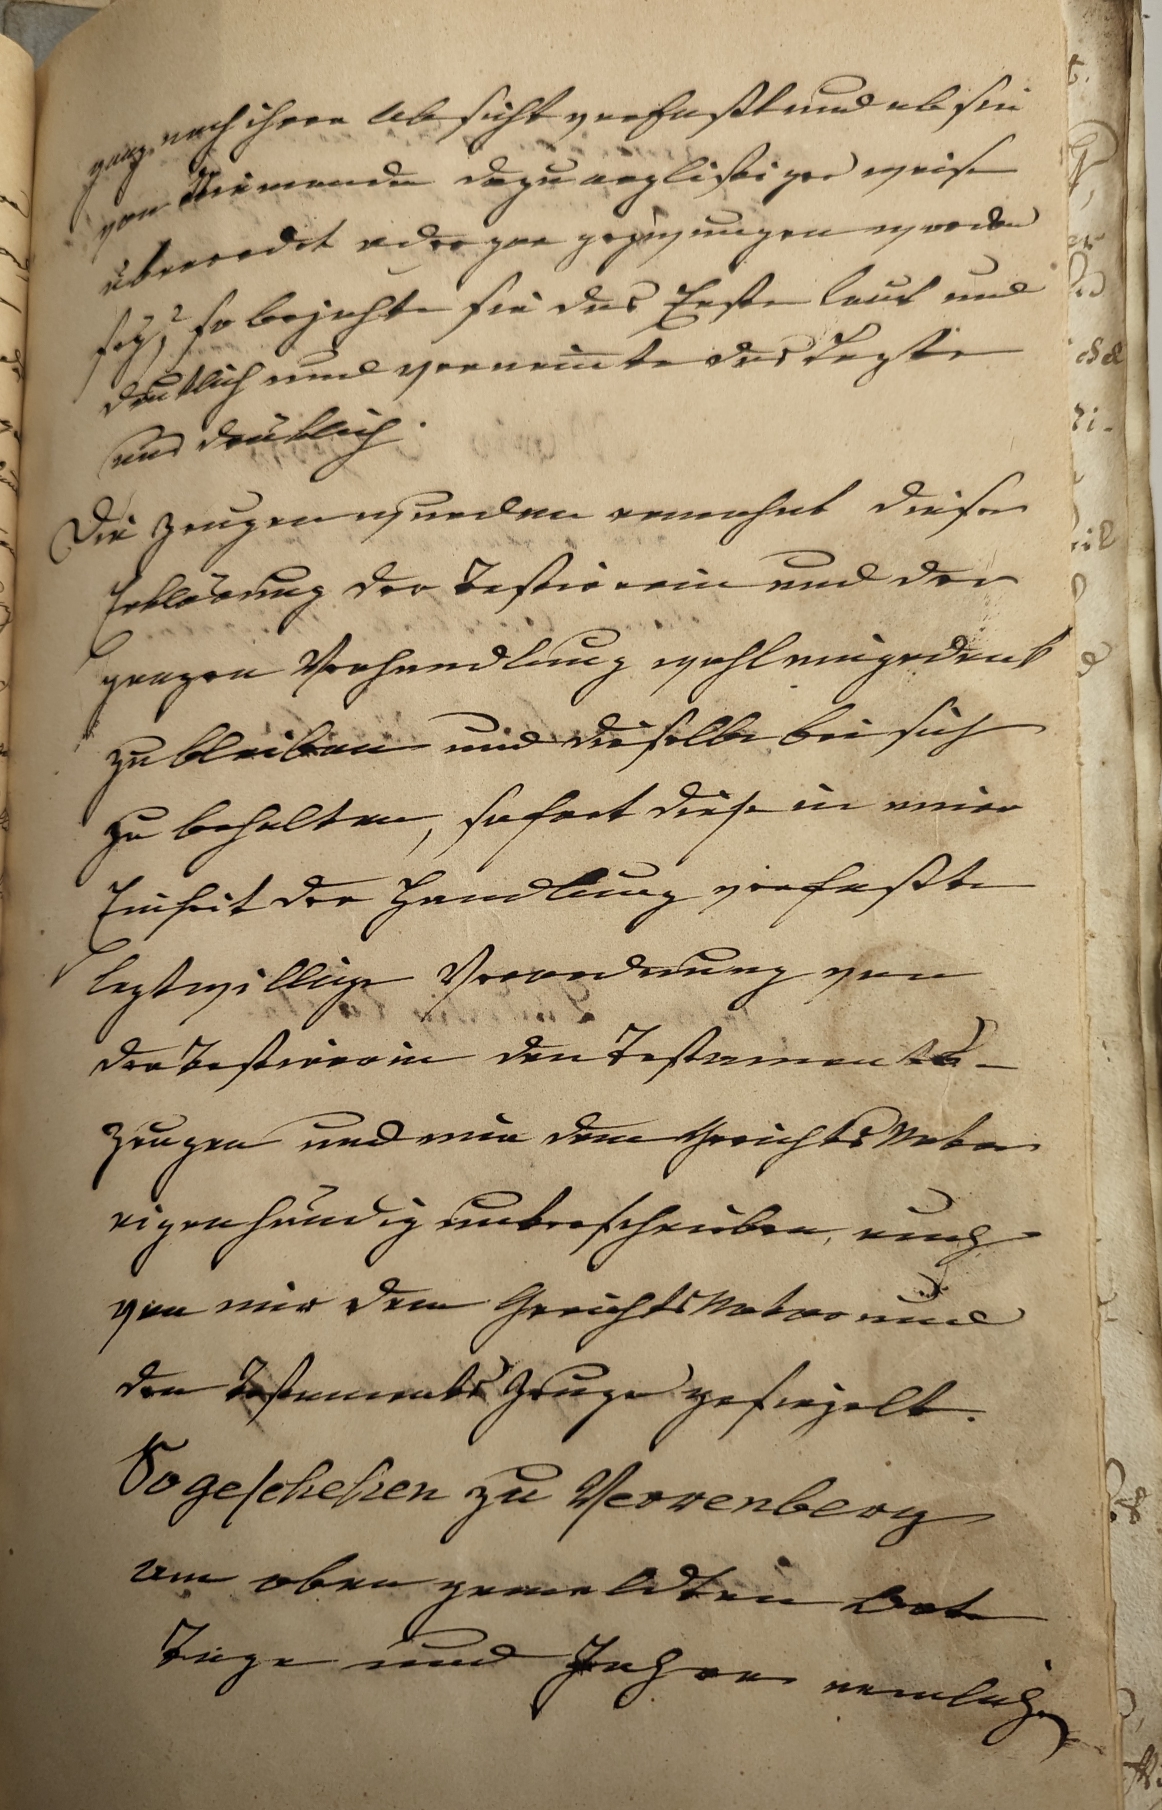 ganz nach ihrer Absicht verfaßt und ob sie
von Niemande dazu arglistiger weise
überredet oder gar gezwungen worden
sey? so bejahte sie das Erste laut und
deutlich und verneinte das Lezte
und deutlich.
Die Zeugen wurden ermahnt dieser
Erklärung der Testirerin und der
ganzen Verhandlung wohl eingedenk
zu bleiben und dieselbe bei sich
zu behalten, sofort diese in einer
Einheit der Handlung verfaßte
leztwillige Verordnung von
der Testirerin den Testaments-
zeugen und mir dem GerichtsNotar
eigenhändig unterschrieben, auch
von mir dem GerichtsNotar und
den Testaments Zeugen gesiegelt.
So geschehen zu Verrenberg
am oben gemeldten Orte
Tage und Jahre nemlich